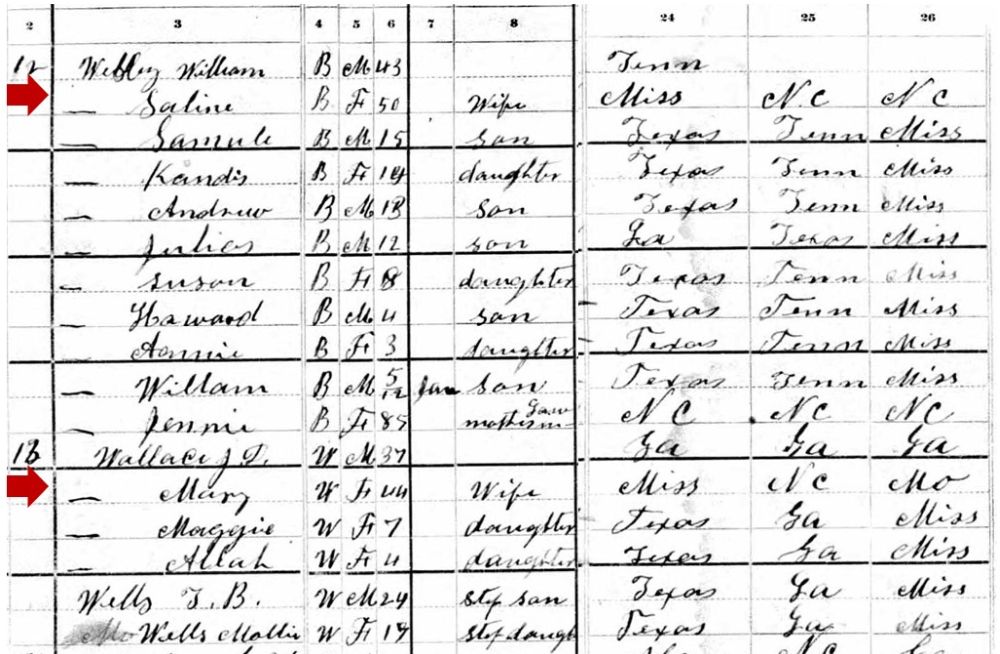 2 3 4 5 6 7 8 24 25 26
12 Webley William B M 43 Tenn
— Saline B F 50 Wife Miss N C N C
— Samule B M 15 son Texas Tenn Miss
— Kandis B F daughter Texas Tenn Miss
— Andrew B M 13 son Texas Tenn Miss
— Julias B M 12 son Ga Texas Miss
— Suson B F 8 daughter Texas Tenn Miss
— Haward B M 4 son Texas Tenn Miss
— Annie B F 3 daughter Texas Tenn Miss
— Willam B M 5/12 Jan son Texas Tenn Miss
— Jennie B F 85 mother in law N C N C N C
13 Wallace J. T. W M 37 Ga Ga Ga
— Mary W F 44 Wife Miss N C Mo
— Maggie W F 7 daughter Texas Ga Miss
— Allah W F 4 daughter Texas Ga Miss
Wells T. B. W M 24 step son Texas Ga Miss
Wells Mollie W F 19 step daugh Texas Ga Miss